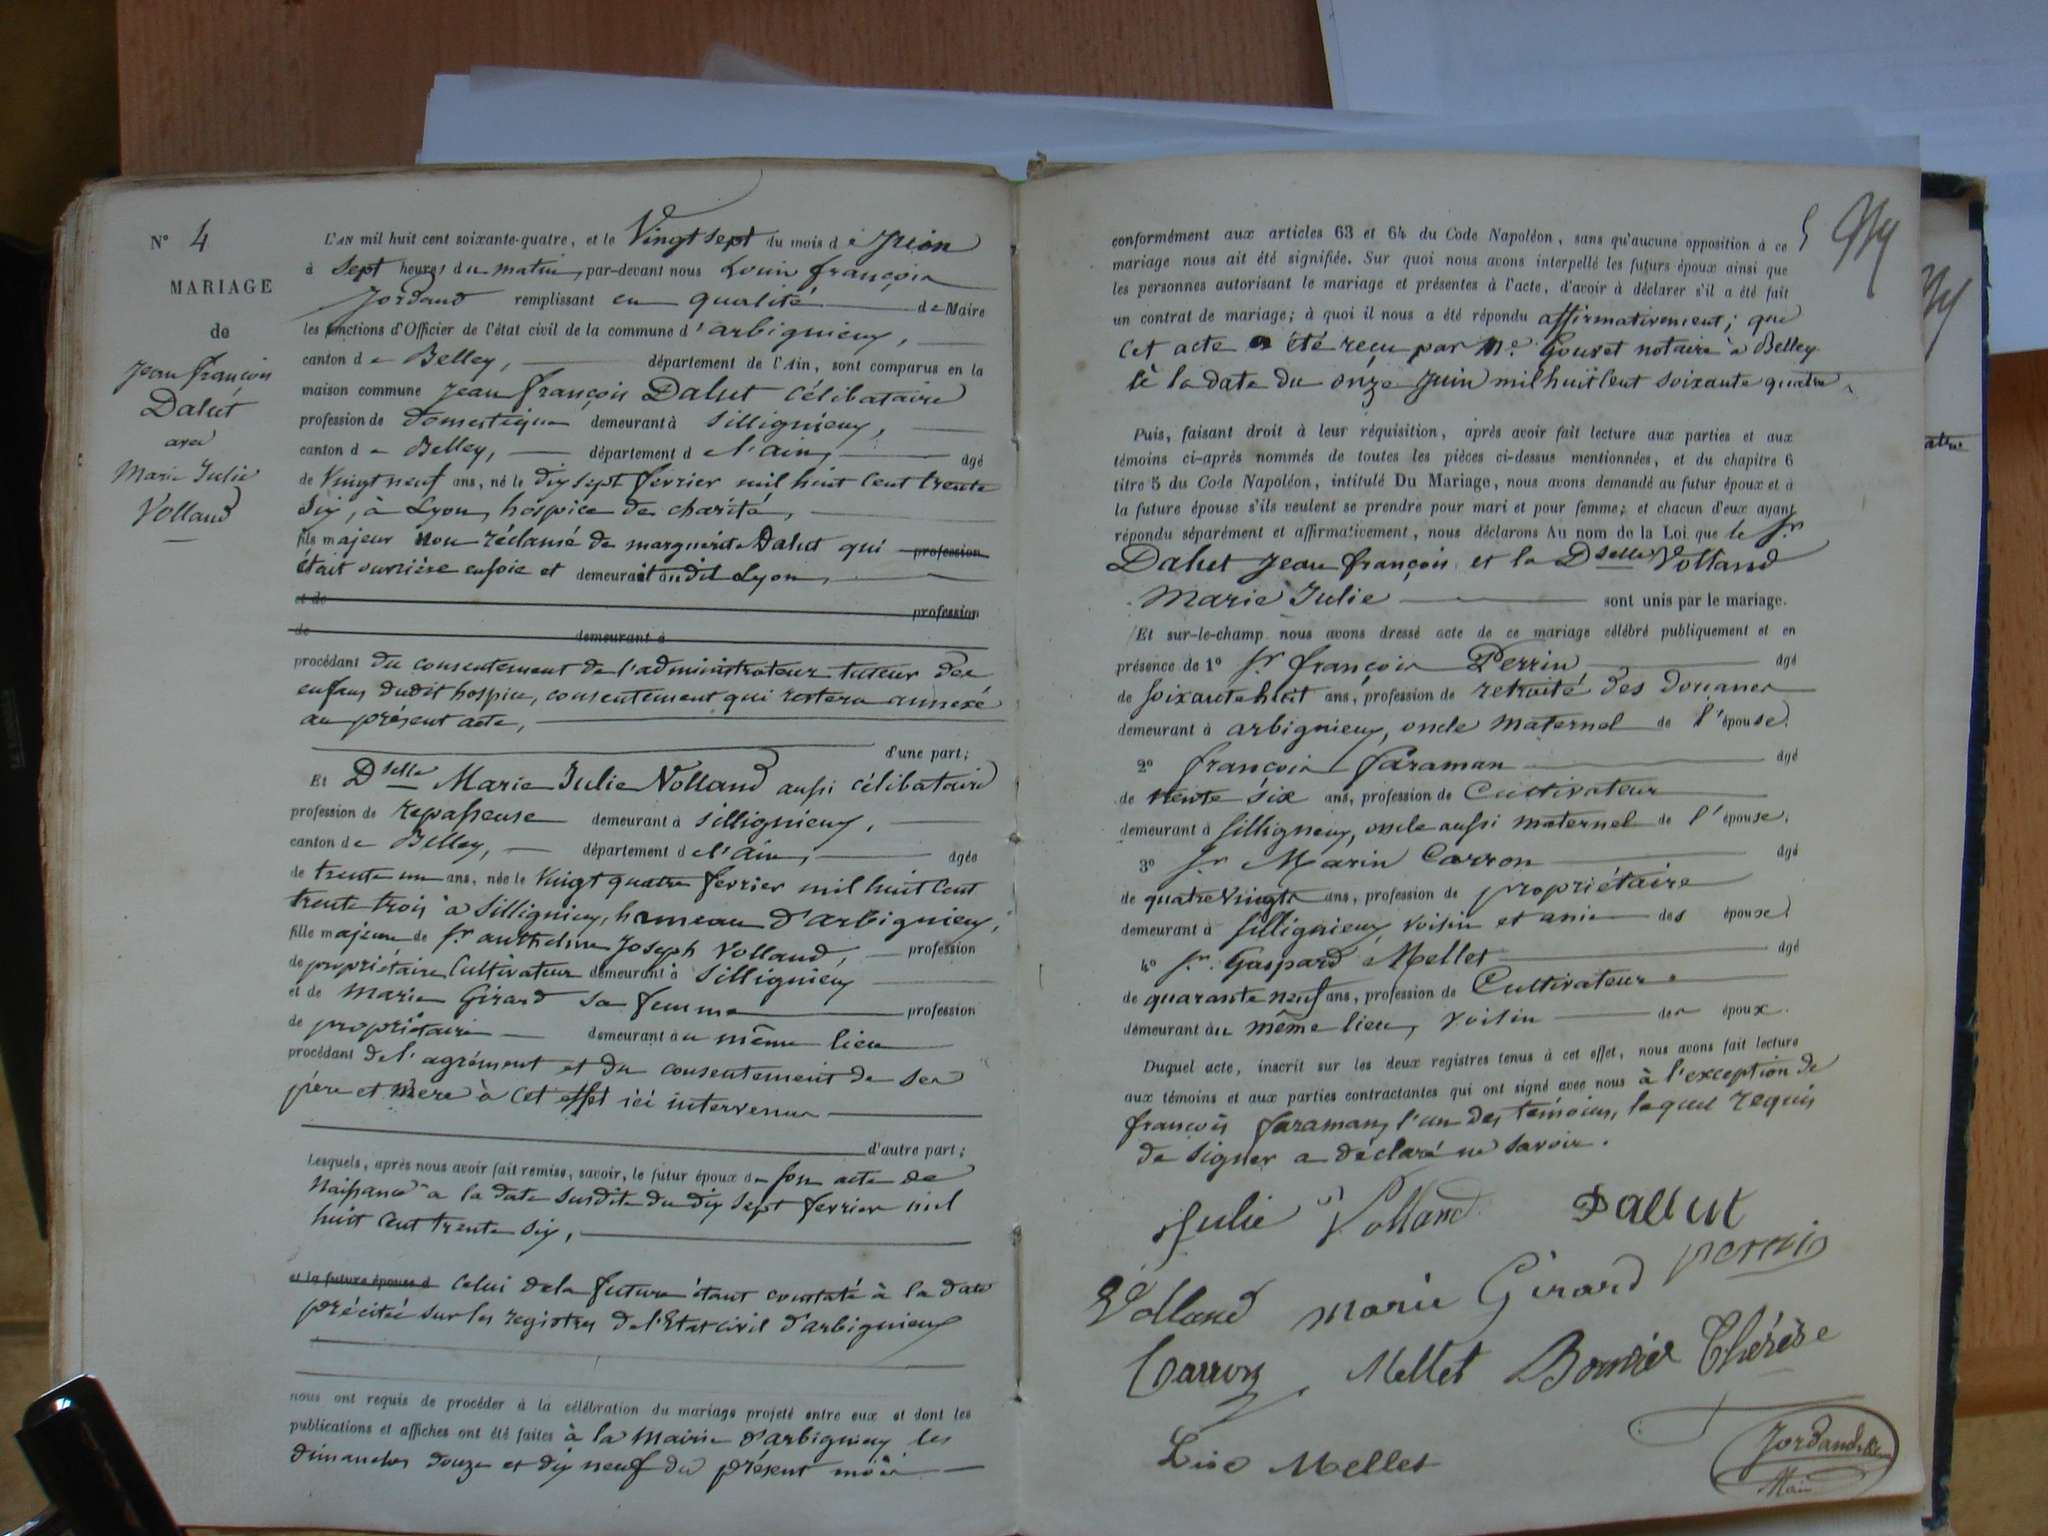 N° 4
MARIAGE
de
Jean françois
Dalut
avec
Marie Julie
Volland
L'AN mil huit cent soixante-quatre, et le Vingt sept du mois de Juin
à sept heures du matin, par-devant nous Louis françois
Jordand remplissant en qualité de Maire
les fonctions d'Officier de l'état civil de la commune d'arbignieu,
canton de Belley, département de l'Ain, sont comparus en la
maison commune Jean françois Dalut Célibataire
profession de domestique demeurant à Sillignieu,
canton de Belley, département de l'ain, âgé
de Vingt neuf ans, né le dix sept fevrier mil huit Cent trente
Six, à Lyon, hospice de charité,
fils majeur non réclamé de marguerite Dalut qui profession
était ouvrière en soie et demeurait au dit Lyon,
et de profession
de demeurant à
procédant du consentement de l'administrateur tuteur des
enfans dudit hospice, consentement qui restera annexé
au présent acte,
d'une part;
Et Dselle Marie Julie Volland aussi célibataire
profession de repasseuse demeurant à Sillignieu,
canton de Belley, département de l'ain, âgée
de trente un ans, née le Vingt quatre fevrier mil huit Cent
trente trois à Sillignieu, hameau d'arbignieu,
fille majeure de Sr. anthelme Joseph Volland, profession
de propriétaire Cultivateur demeurant à Sillignieu
et de Marie Girard sa femme profession
de propriétaire demeurant au même lieu
procédant de l'agrément et du consentement de ses
père et Mère à cet effet ici intervenus
d'autre part;
Lesquels, après nous avoir fait remise, savoir, le futur époux de son acte de
Naissance à la date susdite du dix sept fevrier mil
huit cent trente six,
et la future épouse d celui de la future étant constaté à la date
précitée sur les registres de l'Etat civil d'arbignieu
nous ont requis de procéder à la célébration du mariage projeté entre eux et dont les
publications et affiches ont été faites à la Mairie d'arbignieu les
dimanches douze et dix neuf du présent mois
conformément aux articles 63 et 64 du Code Napoléon, sans qu'aucune opposition à ce
mariage nous ait été signifiée. Sur quoi nous avons interpellé les futurs époux ainsi que
les personnes autorisant le mariage et présentes à l'acte, d'avoir à déclarer s'il a été fait
un contrat de mariage; à quoi il nous a été répondu affirmativement; que
Cet acte a été reçu par Me. Gouret notaire à Belley
à la date du onze Juin mil huit Cent soixante quatre
Puis, faisant droit à leur réquisition, après avoir fait lecture aux parties et aux
témoins ci-après nommés de toutes les pièces ci-dessus mentionnées, et du chapitre 6
titre 5 du Code Napoléon, intitulé Du Mariage, nous avons demandé au futur époux et à
la future épouse s'ils veulent se prendre pour mari et pour femme; et chacun d'eux ayant
répondu séparément et affirmativement, nous déclarons Au nom de la Loi que le Sr.
Dalut Jean françois et la Dselle Volland
Marie Julie sont unis par le mariage.
Et sur-le-champ nous avons dressé acte de ce mariage célébré publiquement et en
présence de 1° Sr. françois Perrin âgé
de Soixante huit ans, profession de retraité des douanes
demeurant à arbignieu, oncle Maternel de l'épouse.
2° françois faraman âgé
de trente six ans, profession de Cultivateur
demeurant à Silligneu, oncle aussi maternel de l'épouse.
3° Sr. Marin Carron âgé
de quatre Vingts ans, profession de propriétaire
demeurant à Sillignieu, voisin et ami des épouse.
4° Sr. Gaspard Mellet âgé
de quarante neuf ans, profession de Cultivateur
demeurant au même lieu, voisin des époux.
Duquel acte, inscrit sur les deux registres tenus à cet effet, nous avons fait lecture
aux témoins et aux parties contractantes qui ont signé avec nous à l'exception de
françois faraman, l'un des témoins, lequel requis
de signer a déclaré ne savoir.
Julie Volland Dallut
Volland Marie Girard perrin
Carron Mellet Thérèse
Lise Mellet
Jordand
Maire